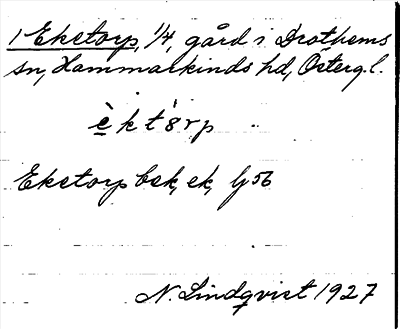 1 Eketorp, 1/4, gård i Drothems
sn, Hammarkinds hd, Österg. l.
è k t 8 r p
Eketorp bsk, ek, lj 56
N. Lindqvist 1927